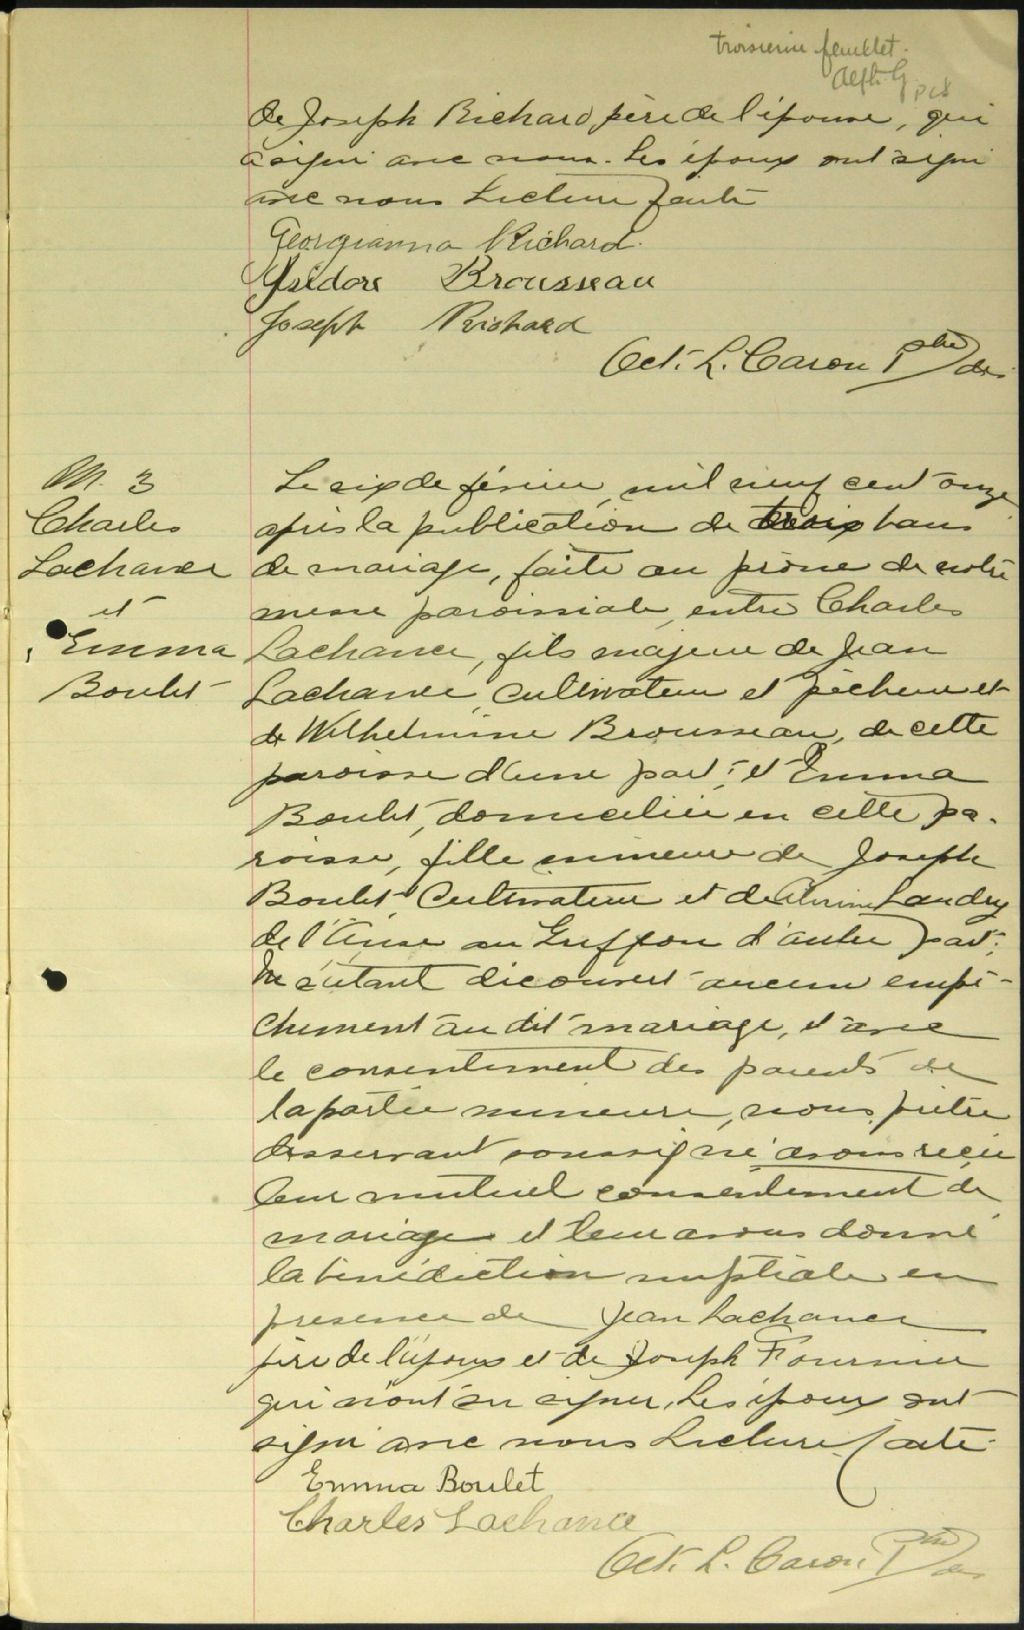 troisième feuillet.
de Joseph Richard père de l'épouse, qui
a signé avec nous. Les époux ont signé
avec nous Lecture faite
Georgianna Richard.
Isidore Brousseau
Joseph Richard
Oct. L. Caron Ptre des
M. 3
Charles
Lachance
et
Emma
Boulet
Le six de février, mil neuf cent onze
après la publication de trois bans
de mariage, faite au prône de notre
messe paroissiale, entre Charles
Lachance, fils majeur de Jean
Lachance, cultivateur et pêcheur et
de Wilhelmine Brousseau, de cette
paroisse d'une part; et Emma
Boulet, domiciliée en cette pa-
roisse, fille mineure de Joseph
Boulet Cultivateur et de Landry
de l'Anse au Griffon d'autre part;
Ne s'étant découvert aucun empê-
chement au dit mariage, et avec
le consentement des parents de
la partie mineure, nous, prêtre
desservant soussigné avons reçu
leur mutuel consentement de
mariage et leur avons donné
la bénédiction nuptiale en
présence de Jean Lachance
père de l'époux et de Joseph Fournier
qui n'ont su signer. Les époux ont
signé avec nous Lecture faite.
Emma Boulet
Charles Lachance
Oct. L. Caron Ptre des